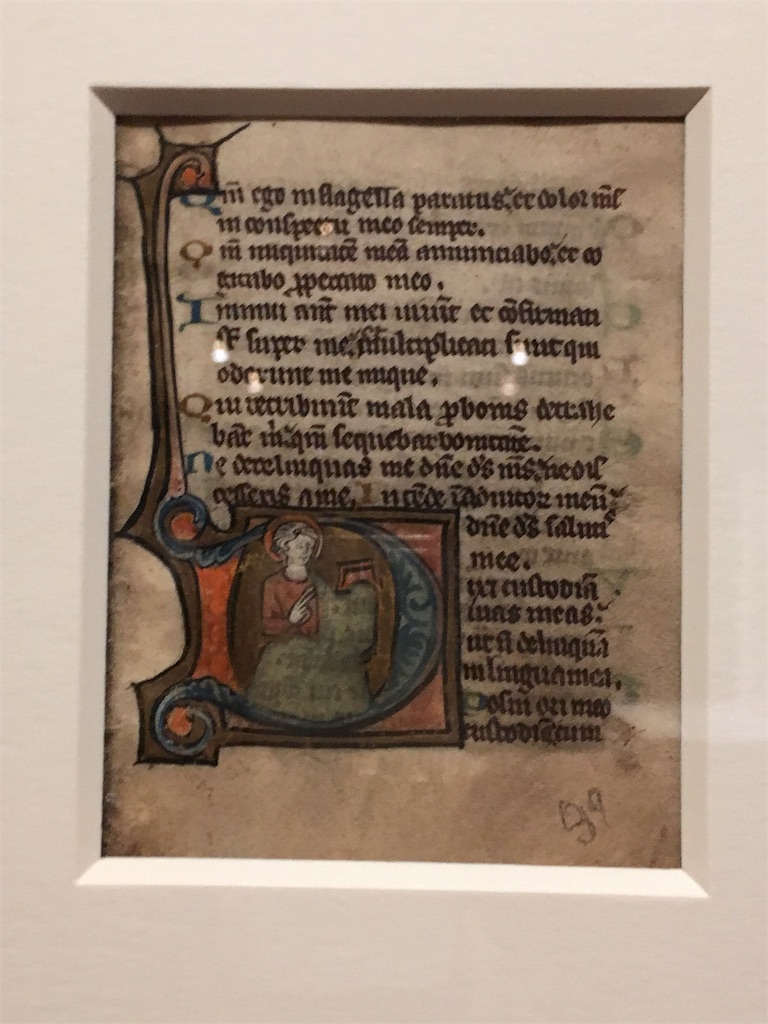 Qm ego in flagella paratus: et dolor ms
in conspectu meo semper.
Qm iniquitatē meā annunciabo: et co
gitabo p peccato meo.
Inimici aūt mei uiuūt et cōfirmati
sr̄ super me: multiplicati sunt qui
oderunt me inique.
Qui retribuūt mala p bonis detrahe
bāt m: qm sequebar bonitatē.
Ne derelinquas me dn̄e ds̄ ms̄: ne dis
cesseris a me. Intēde ī adiutor meū:
dn̄e ds̄ salutis
mee.
ixi custodiā
uias meas:
ut ñ delinquā
in lingua mea.
Posui ori meo
custodiā: cum